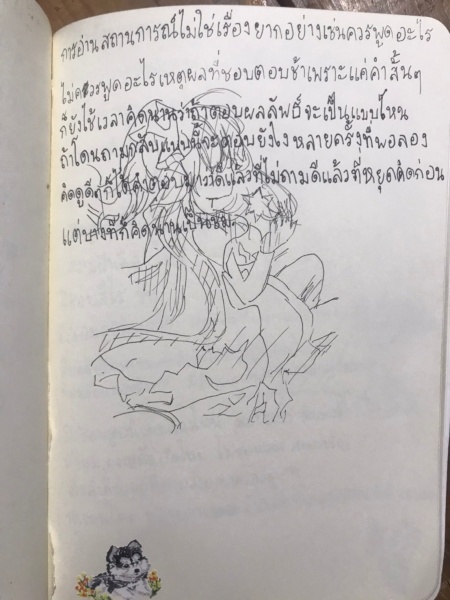 การอ่านสถานการณ์ไม่ใช่เรื่องยากอย่างเช่นควรพูดอะไร
ไม่ควรพูดอะไรเหตุผลที่ชอบตอบช้าเพราะแค่คำสั้นๆ
ก็ยังใช้เวลาคิดนานว่าถ้าตอบผลลัพธ์จะเป็นแบบไหน
ถ้าโดนถามกลับแบบนี้จะตอบยังไงหลายครั้งที่พอลอง
คิดดูดีๆก็ได้คำตอบมาว่าดีแล้วที่ไม่ถามดีแล้วที่หยุดคิดก่อน
แต่บางทีก็คิดนานเป็นชม.